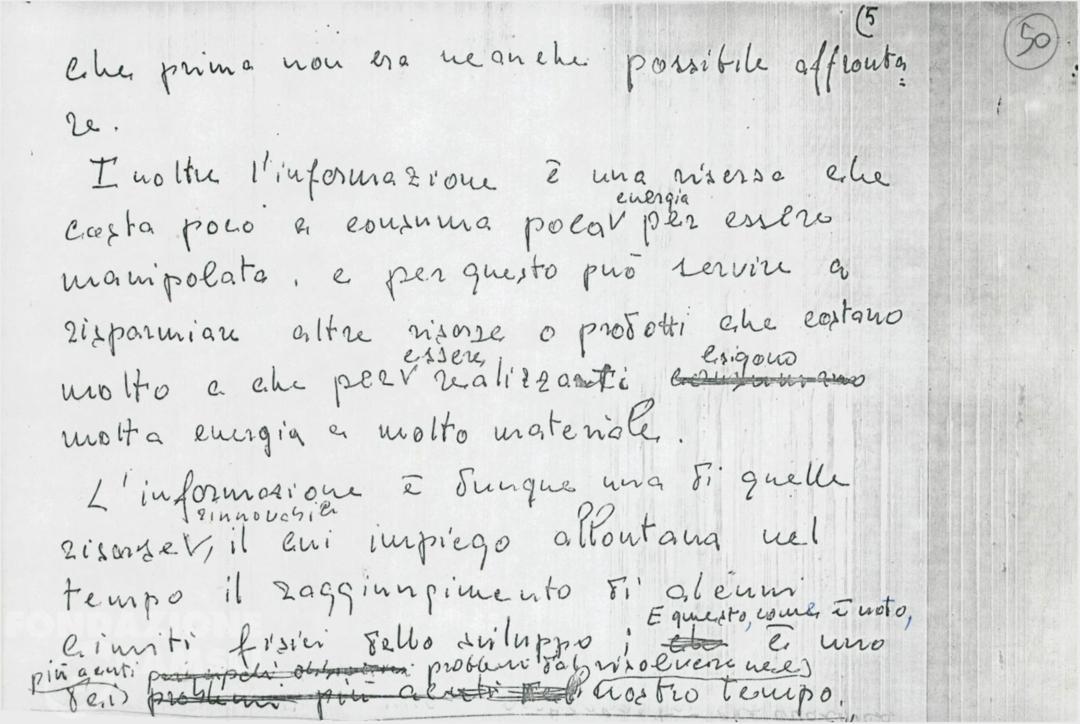 (5
50
che prima non era neanche possibile affronta
re.
Inoltre l'informazione è una risorsa che
energia
costa poco e consuma poca per essere
manipolata, e per questo può servire a
risparmiare altre risorse o prodotti che costano
essere esigono
molto e che per realizzati
molta energia e molto materiale.
L'informazione è dunque una di quelle
rinnovabili
risorse, il cui impiego allontana nel
tempo il raggiungimento di alcuni
E questo, come è noto,
limiti fisici dello sviluppo; che è uno
più acuti problemi da risolvere nel
dei problemi più nostro tempo.
FONDAZIONE